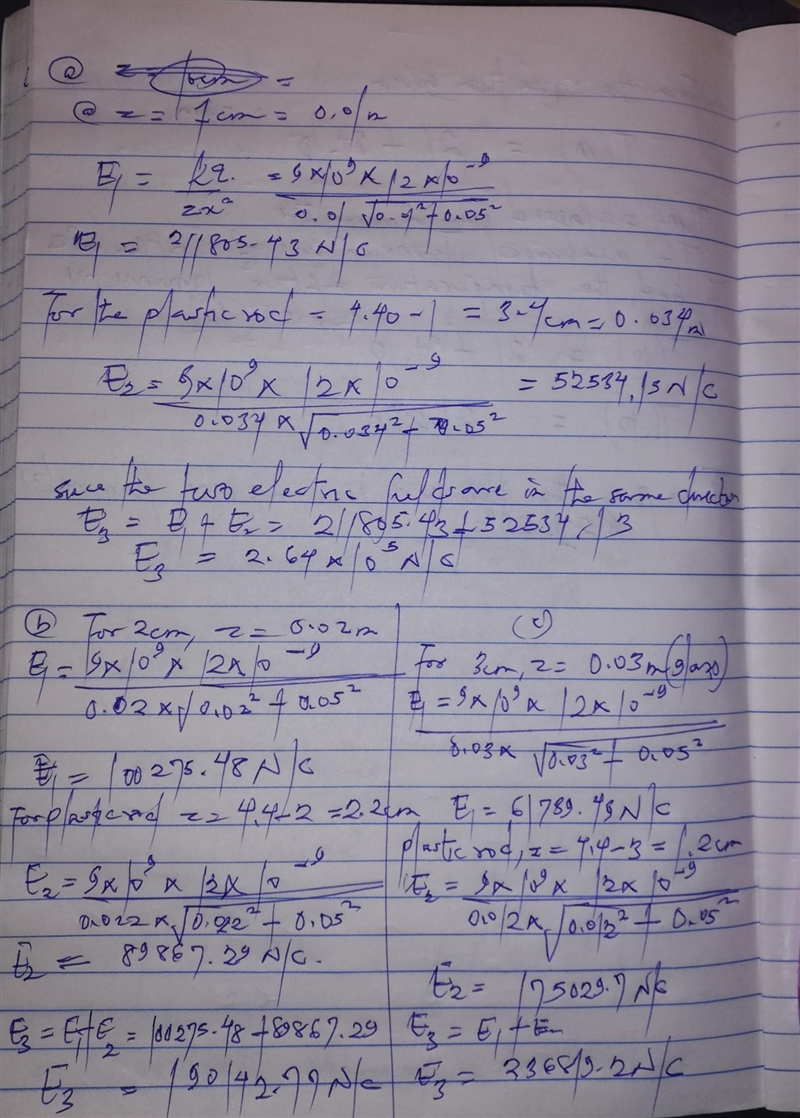 (a) z =
@ z = 1cm = 0.01m
E₁ = kq/zx² = 9x10⁹ x 12x10⁻⁹ / 0.01 √0.01²+0.05²
E₁ = 211805.43 N/C
For the plastic rod = 4.40-1 = 3.4cm = 0.034m
E₂ = 9x10⁹ x 12x10⁻⁹ / 0.034 x √0.034²+0.05² = 52534.13 N/C
Since the two electric fields are in the same direction
E₃ = E₁ + E₂ = 211805.43 + 52534.13
E₃ = 2.64 x 10⁵ N/C
(b) For 2cm, z = 0.02m
E₁ = 9x10⁹ x 12x10⁻⁹ / 0.02 x √0.02² + 0.05²
E₁ = 100275.48 N/C
For plastic rod z = 4.4-2 = 2.2cm
E₂ = 9x10⁹ x 12x10⁻⁹ / 0.022 x √0.022² + 0.05²
E₂ = 89867.29 N/C.
E₃ = E₁+E₂ = 100275.48 + 89867.29
E₃ = 190142.77 N/C
(c)
For 3cm, z = 0.03m (glass)
E₁ = 9x10⁹ x 12x10⁻⁹ / 0.03 x √0.03² + 0.05²
E₁ = 61789.49 N/C
plastic rod, z = 4.4-3 = 1.2cm
E₂ = 9x10⁹ x 12x10⁻⁹ / 0.012 x √0.012² + 0.05²
E₂ = 175029.7 N/C
E₃ = E₁ + E₂
E₃ = 236819.2 N/C